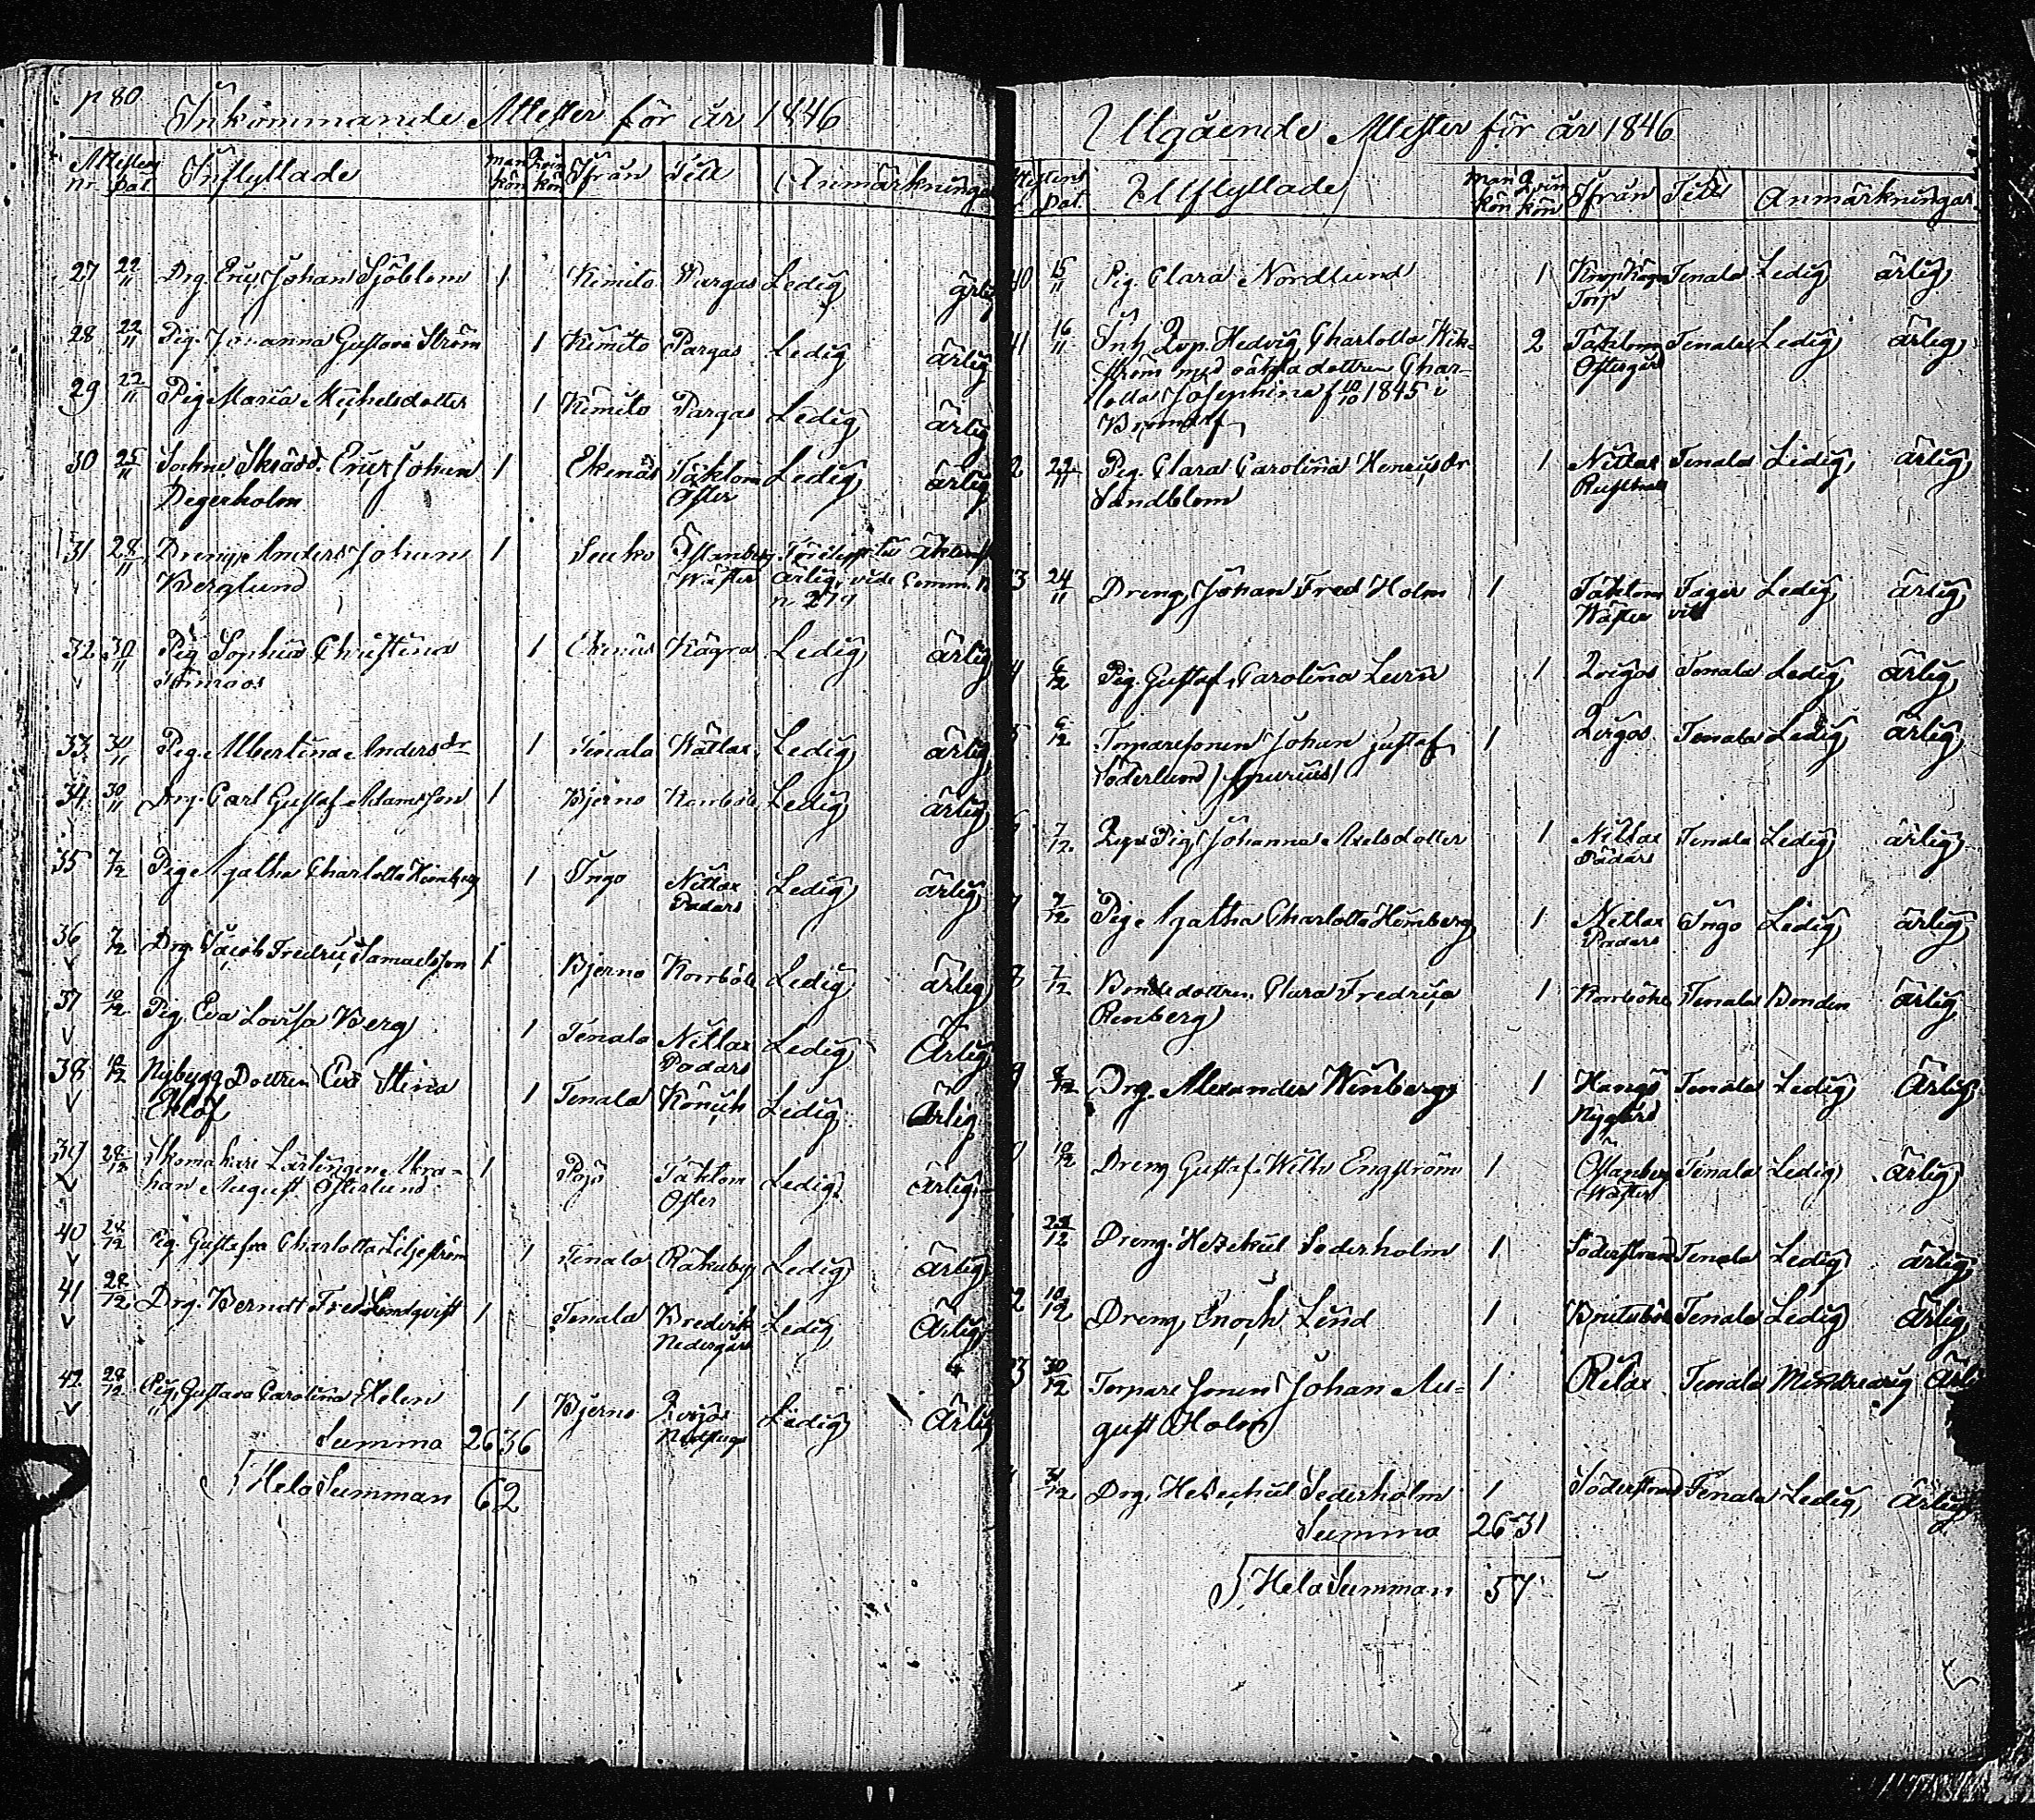 p 80
Inkommande Attester för år 1846
Attestens
nr Dat. Inflyttade mankön Qvinkön Ifrån Till Anmärkningar
27 22/11 Drg. Eric Johan Sjöblom 1 Kimito Pargas Ledig ärlig
28 22/11 Pig. Johanna Gustava Ström 1 Kimito Pargas Ledig ärlig
29 22/11 Pig Maria Michelsdotter 1 Kimito Pargas Ledig ärlig
30 25/11 Eric Johan 1 Ekenäs Täktom Ledig ärlig
Degerholm Öster
31 28/11 Drengen Anders Johan 1 Östanberg
Berglund Wäster ärlig, vide Comm. n
n 279
32 30/11 Pig Sophia Christina 1 Ekenäs Ledig ärlig
33 30/11 Pig. Albertina Andersdr 1 Tenala Ledig ärlig
34 30/11 Drg. Carl Gustaf Adamsson 1 Bjerno Ledig ärlig
35 7/12 Pig Agatha Charlotta Himberg 1 Ingo Nitlax Ledig ärlig
Padars
36 7/12 Drg. Jacob Fredric Samuelsson 1 Bjerno Ledig ärlig
37 10/12 Pig. Eva Lovisa Berg 1 Tenala Nitlax Ledig Ärlig
Padars
38 10/12 Nybygg Dottren Eva Stina 1 Tenala Ledig Ärlig
Eklöf
39 28/12 Skomakare Lärlingen Abra- 1 Pojo Täktom Ledig Ärlig
ham August Österlund Öster
40 28/12 Pig. Gustafva Charlotta Liljeström 1 Tenala Ledig Ärlig
41 28/12 Drg. Berndt Fred Lindqvist 1 Tenala Bredvik Ledig Ärlig
Nedergård
42 28/12 Pig. Gustava Carolina Helen 1 Bjerno Ledig Ärlig
Summa 26 36
Hela Summan 62
Utgående Attester för år 1846
Attestens
Dat. Utflyttade mankön Qvinkön Ifrån Till Anmärkningar
40 15/11 Pig. Clara Nordlund 1 Tenala Ledig ärlig
Torp
41 16/11 Inh. Qvp. Hedvig Charlotta Wik- 2 Täktom Tenala Ledig ärlig
ström med oäkta dottren Char- Östergård
lotta Josephina f 10/10 1845 i
Bromarf
2 22/11 Pig. Clara Carolina Henricsdr 1 Nitlax Tenala Ledig ärlig
Sandblom Rusthåll
3 24/11 Dreng. Johan Fred Holm 1 Täktom Tager Ledig ärlig
Wäster vik
4 6/12 Pig. Gustaf. Carolina 1 Tenala Ledig ärlig
5 6/12 Torparesonen Johan Gustaf 1 Tenala Ledig ärlig
Söderlund (spurius)
6 7/12 Pig. Johanna Axelsdotter 1 Nitlax Tenala Ledig ärlig
Padars
7 7/12 Pig. Agatha Charlotta Himberg 1 Nitlax Ingo Ledig ärlig
Padars
8 7/12 Bondedottren Clara Fredrica 1 Tenala ärlig
Renberg
9 8/12 Drg. Alexander Winberg 1 Hangö Tenala Ledig Ärlig
Nygård
0 10/12 Dreng Gustaf Wilh Engström 1 Östanberg Tenala Ledig Ärlig
Wäster
28/12 Dreng. Hezekiel Sederholm 1 Söderstrand Tenala Ledig ärlig
2 10/12 Dreng. Enoch Lind 1 Tenala Ledig Ärlig
3 30/12 Torpare Sonen Johan Au- 1 Rilax Tenala Minderårig Ärlig
gust Holm
31/12 Drg. Hezechiel Sederholm 1 Söderstrand Tenala Ledig Ärlig
Summa 26 31
Hela Summan 57